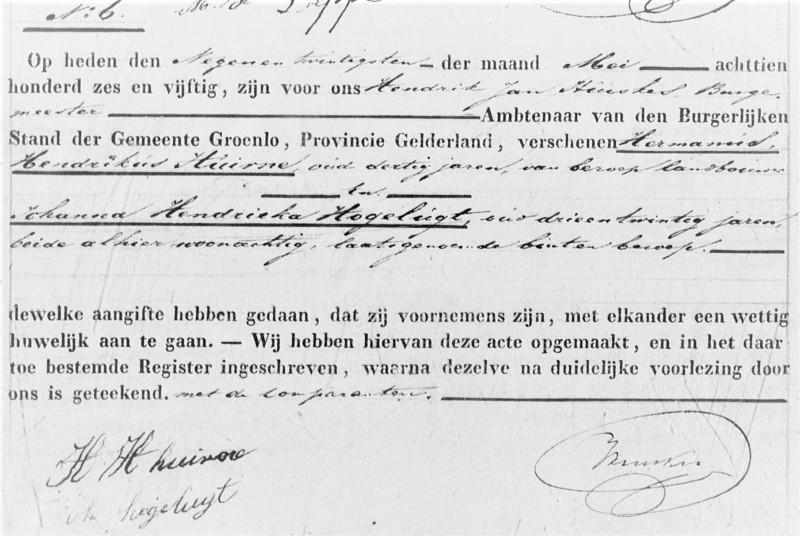 N.o 6.
Op heden den Negenentwintigsten der maand Mei achttien
honderd zes en vijftig, zijn voor ons Hendrik Jan Huiskes, Burge-
meester Ambtenaar van den Burgerlijken
Stand der Gemeente Groenlo, Provincie Gelderland, verschenen Hermanus,
Hendrikus Huirne, oud dertig jaren, van beroep landbouwer
en
Johanna Hendrieka Hogelugt, oud drieentwintig jaren,
beide alhier woonachtig, laatsgenoemde buiten beroep.
dewelke aangifte hebben gedaan, dat zij voornemens zijn, met elkander een wettig
huwelijk aan te gaan. — Wij hebben hiervan deze acte opgemaakt, en in het daar
toe bestemde Register ingeschreven, waarna dezelve na duidelijke voorlezing door
ons is geteekend. met de comparanten.
H H huirne
hogelugt